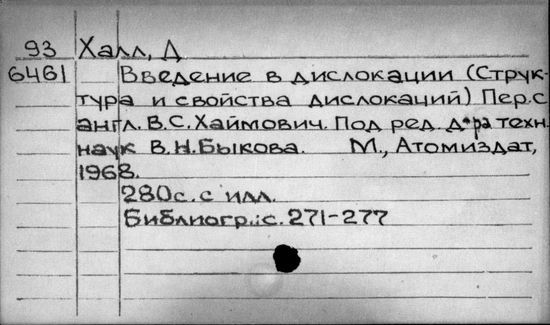 93 Халл, Д
6461 Введение в дислокации (Струк-
тура и свойства дислокаций) Пер. с
англ. В.С. Хаймович. Под ред. д-ра техн.
наук В.Н. Быкова. М., Атомиздат,
1968.
280с. с илл.
Библиогр.: с. 271-277